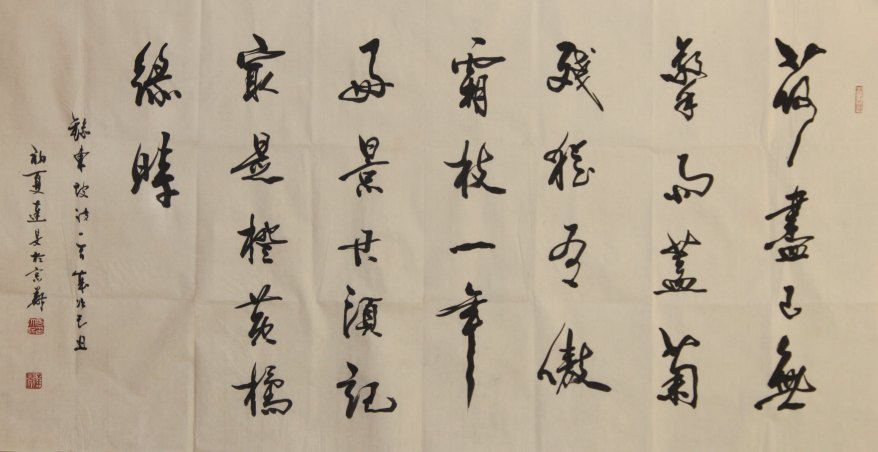 荷盡已無
擎雨蓋菊
殘猶有傲
霜枝一年
好景君須記
最是橙黄橘
綠時
蘇東坡詩一首歲次己丑
初夏於京華